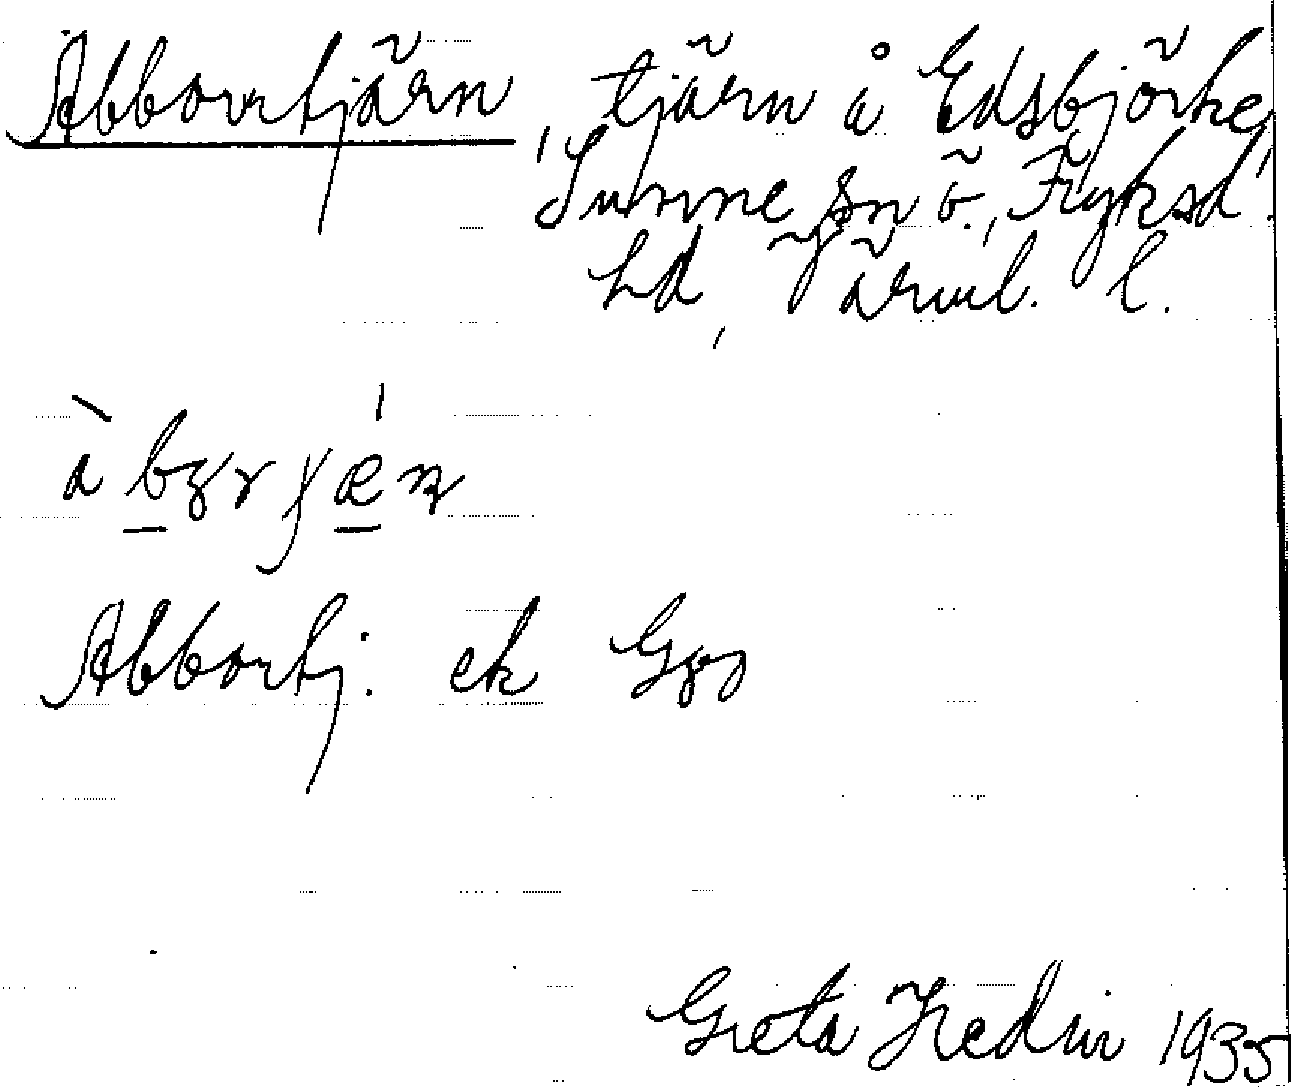 Abborrtjärn, tjärn å Edsbjörke,
Sunne sn ö., Fryksd.
hd, Värml. l.
Abbortj. ek
Greta Hedin 1935